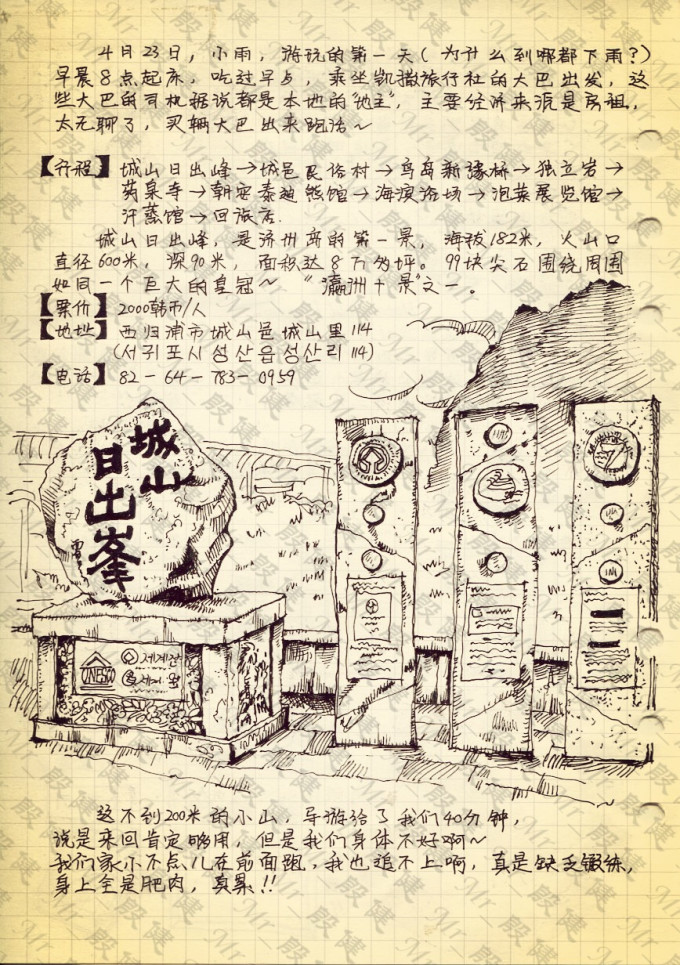 4月23日，小雨，游玩的第一天（为什么到哪都下雨？）
早晨8点起床，吃过早点，乘坐凯撒旅行社的大巴出发，这
些大巴的司机据说都是本地的"地主"，主要经济来源是房租，
太无聊了，买辆大巴出来跑活～
【行程】城山日出峰→城邑民俗村→鸟岛新缘桥→独立岩→
药泉寺→朝安泰迪熊馆→海滨浴场→泡菜展览馆→
汗蒸馆→回旅店.
城山日出峰，是济州岛的第一景，海拔182米，火山口
直径600米，深90米，面积达8万多坪。99块尖石围绕周围
如同一个巨大的皇冠～"瀛洲十景"之一。
【票价】2000韩币/人
【地址】西归浦市城山邑城山里114
（서귀포시 성산읍 성산리 114）
【电话】82-64-783-0959
城山
日出峯
UNESCO
세계
这不到200米的小山，导游给了我们40分钟，
说是来回肯定够用，但是我们身体不好啊～
我们家小不点儿在前面跑，我也追不上啊，真是缺乏锻练，
身上全是肥肉，真累!!
Mr_殷健